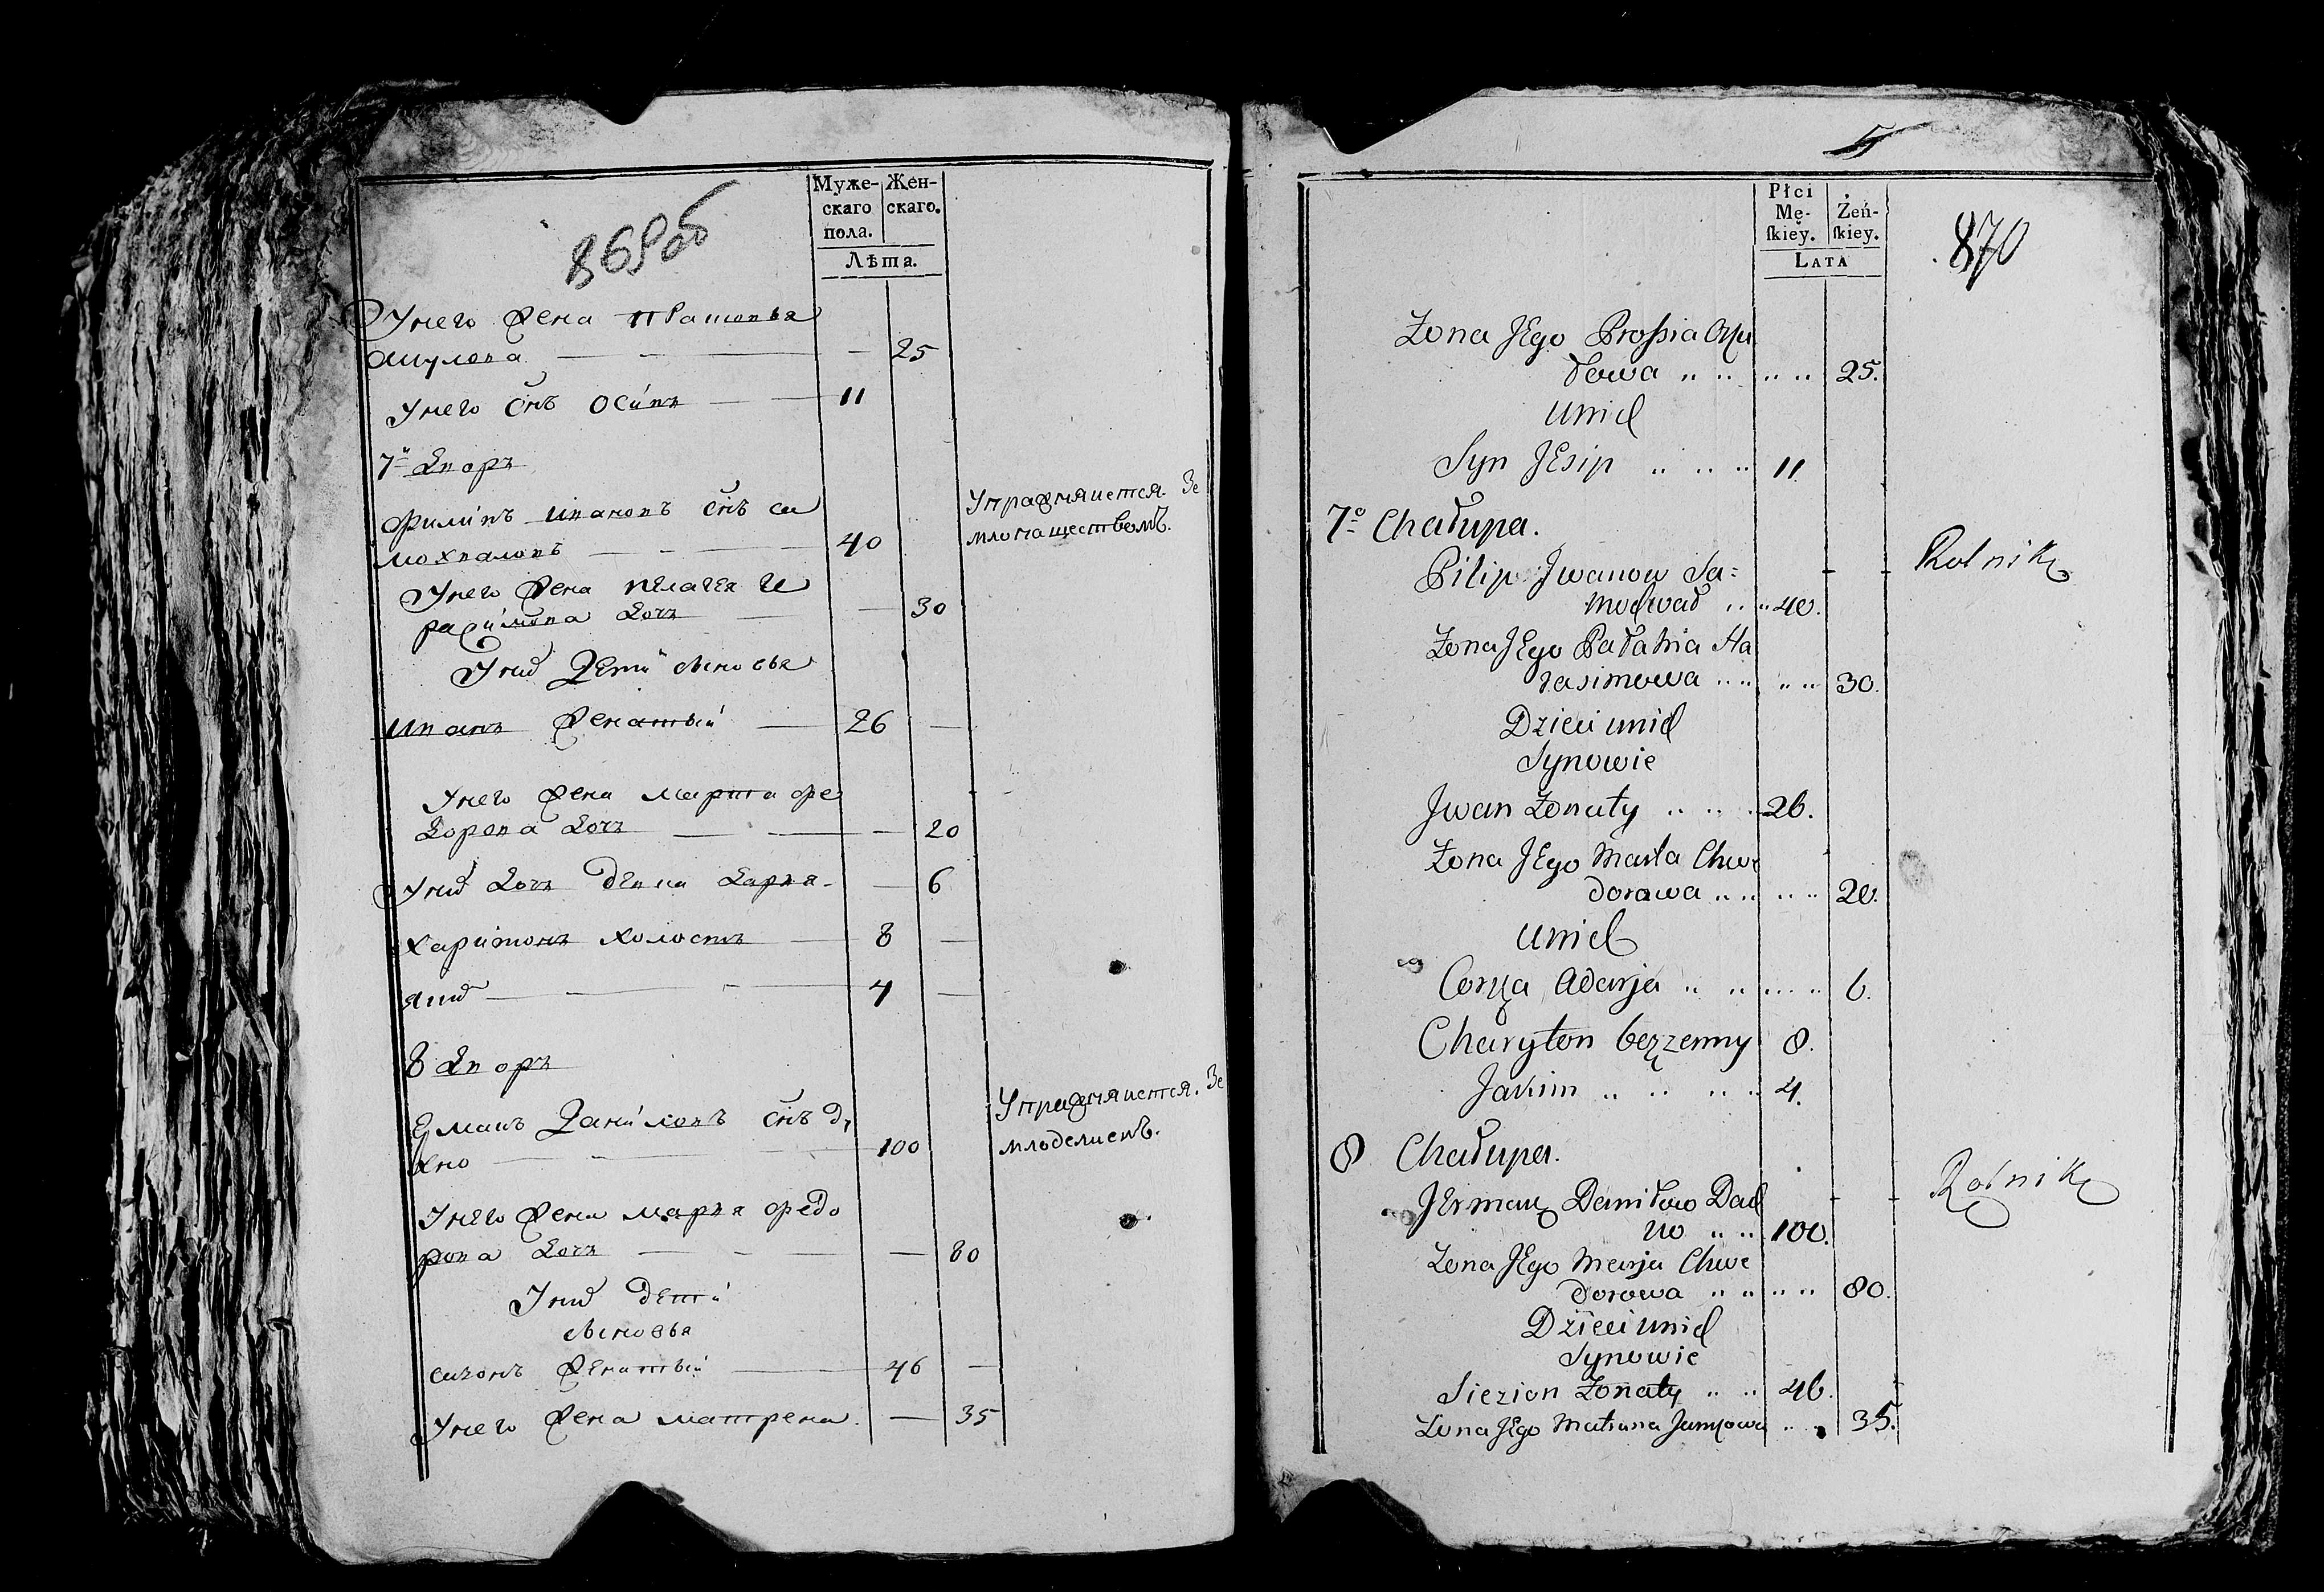 869об
Муже- Жен-
скаго скаго.
пола.
Лѣта.
Унего жена
25
Унего снъ осипъ 11
7й дворъ
филипъ ивановъ снъ са
мохваловъ 40
Упражняется. Зе
млопашествомъ.
Унего жена пелагея Ге
расимова дочь 30
Уних Дети сыновья
иванъ женатый 26
Унего жена марта фе
дорова дочь 20
Уних дочь дарья 6
харитонъ холостъ 8
4
8 дворъ
Ермакъ Даниловъ снъ Дя
хно 100
Упражняется. Зе
Унего жена марья федо
рова дочь 80
Уних дети
сыновья
сизонъ женатый 46
Унего жена матрена 35
5
Płci
Mę- Żeń-
skiey. skiey.
LATA
870
Zona JEgo Prossia
25.
Unich
Syn JEsip 11
7o Chałupa.
Pilip Jwanow Sa=
mochwał 40.
Rolnik
Zona JEgo Pałahia Ha
rasimowa 30.
Dzieci unich
Synowie
Jwan Zonaty 26.
Zona JEgo Marta Chwe
dorowa 20.
Unich
Corka Adarja 6.
Charyton bezzenny 8.
Jakim 4.
8 Chałupa.
JErmak Daniłow Dach
no 100.
Rolnik
Zona JEgo Marja Chwe
dorowa 80.
Dzieci unich
Synowie
Siezion Zonaty 46.
Zona JEgo Matruna 35.